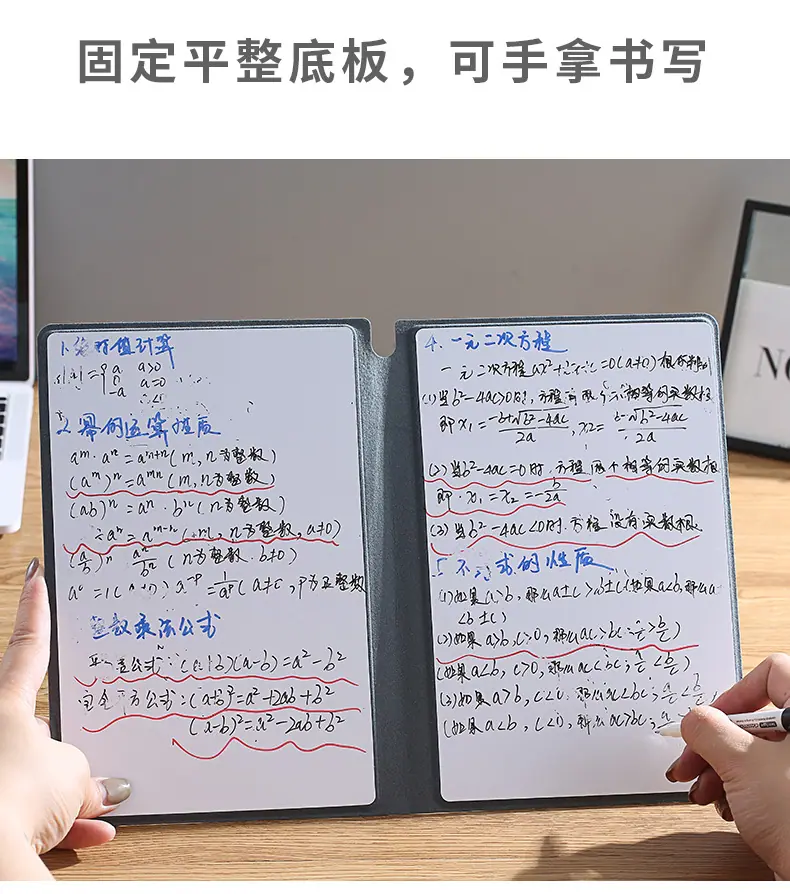 固定平整底板，可手拿书写
值计算
a a>0
a=0
-a
2.幂的运算性质
aᵐ·aⁿ=aᵐ⁺ⁿ(m,n为整数)
(aᵐ)ⁿ=aᵐⁿ(m,n为整数)
(ab)ⁿ=aⁿ·bⁿ(n为整数)
aⁿ=aᵐ⁻ⁿ(m,n为整数,a≠0)
(a/b)ⁿ aⁿ/bⁿ(n为整数.b≠0)
a⁻ᵖ=1/aᵖ(a≠0,p为正整数
整数乘法公式
公式:(a+b)(a-b)=a²-b²
完全平方公式:(a+b)²=a²+2ab+b²
(a-b)²=a²-2ab+b²
4.一元二次方程
一元二次方程ax²+ =0(a≠0)根
(1)当b²-4ac>0时,方程有两个不相等的实数根
即x₁=-b+√b²-4ac/2a,x₂= b-√b²-4ac/2a
(2)当b²-4ac=0时.方程两个相等的实数根
即.x₁=x₂=-b/2a
(3)当b²-4ac<0时.方程没有实数根
5不 式的性质
(1)如果a>b,那么a±c>b±c(如果a<b,那么a
<b±c)
(2)如果a>b,c>0,那么ac>bc;a/c>b/c)
(如果a<b,c>0,那么ac<bc;a/c<b/c)
(3)如果a>b,c<0.那么ac<bc;a/c<b/c
(如果a<b,c<0,那么ac>bc;a
NO